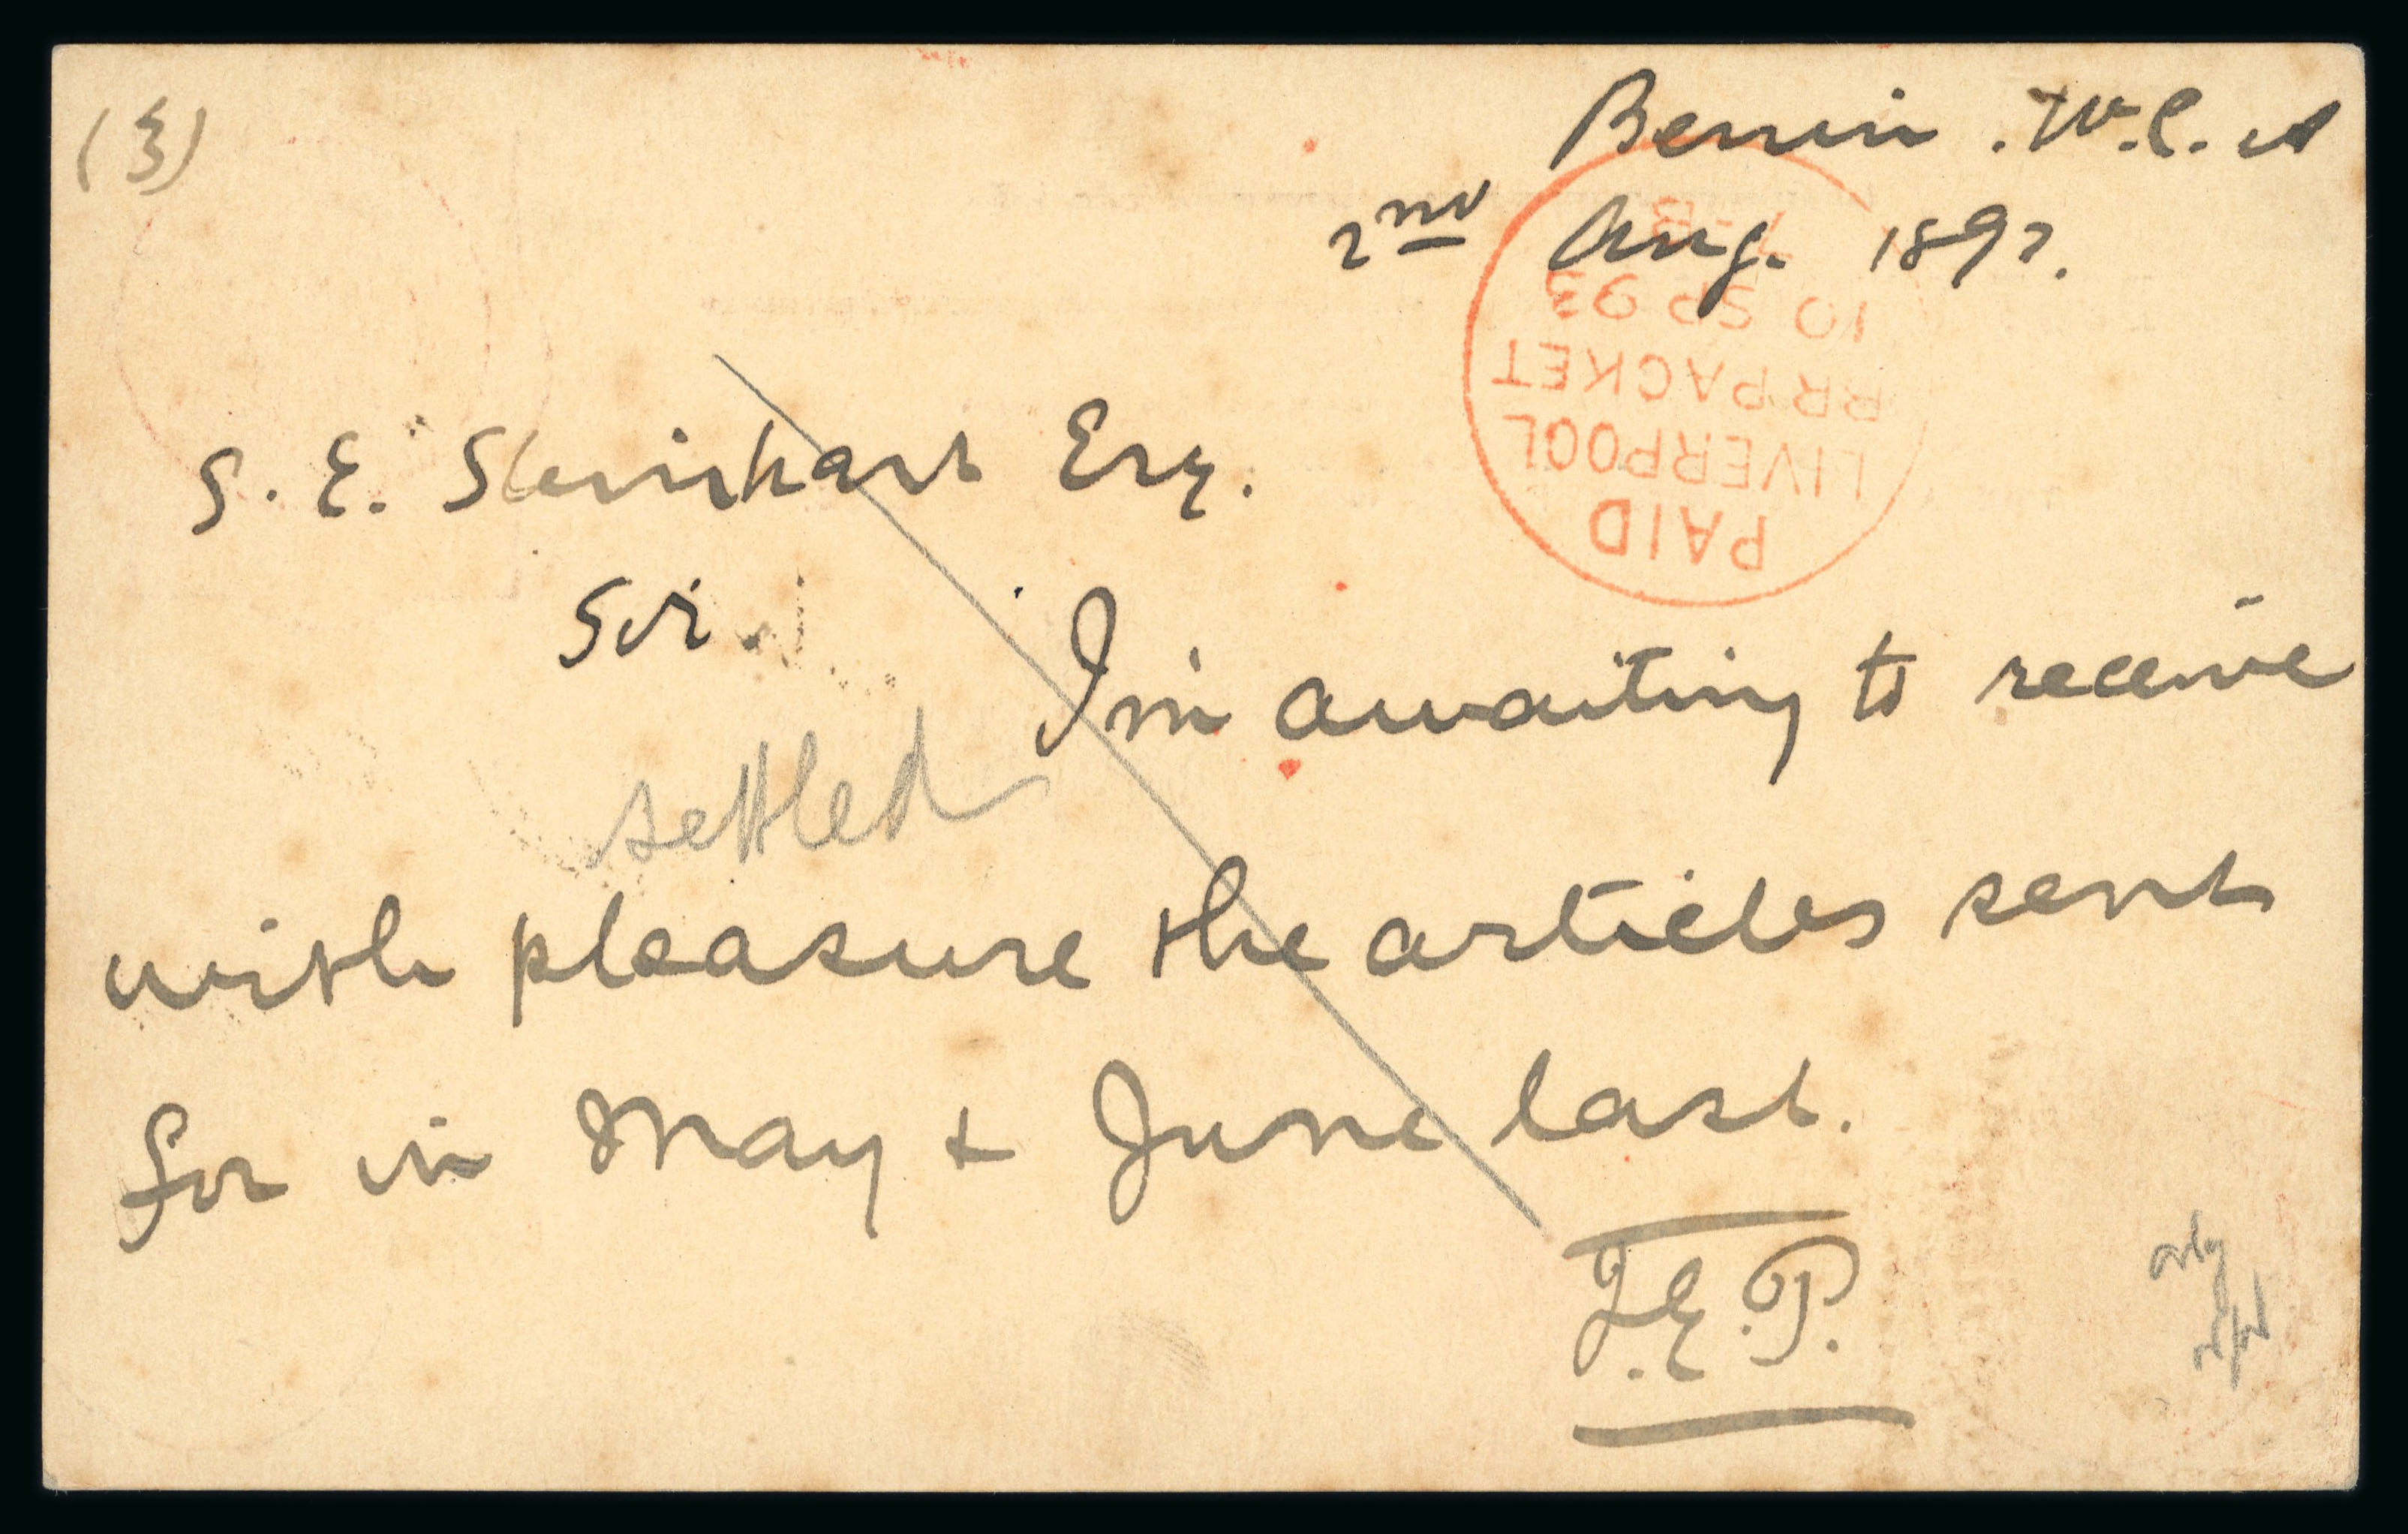 (3)
Bennin . W.C. A
2nd Aug. 1893.
PAID
LIVERPOOL
BR PACKET
10 SP 93
S. E. Steinhart Esq.
Sir.
I'm awaiting to receive
settled
with pleasure the articles sent
for in May + June last.
J.E.P.
only